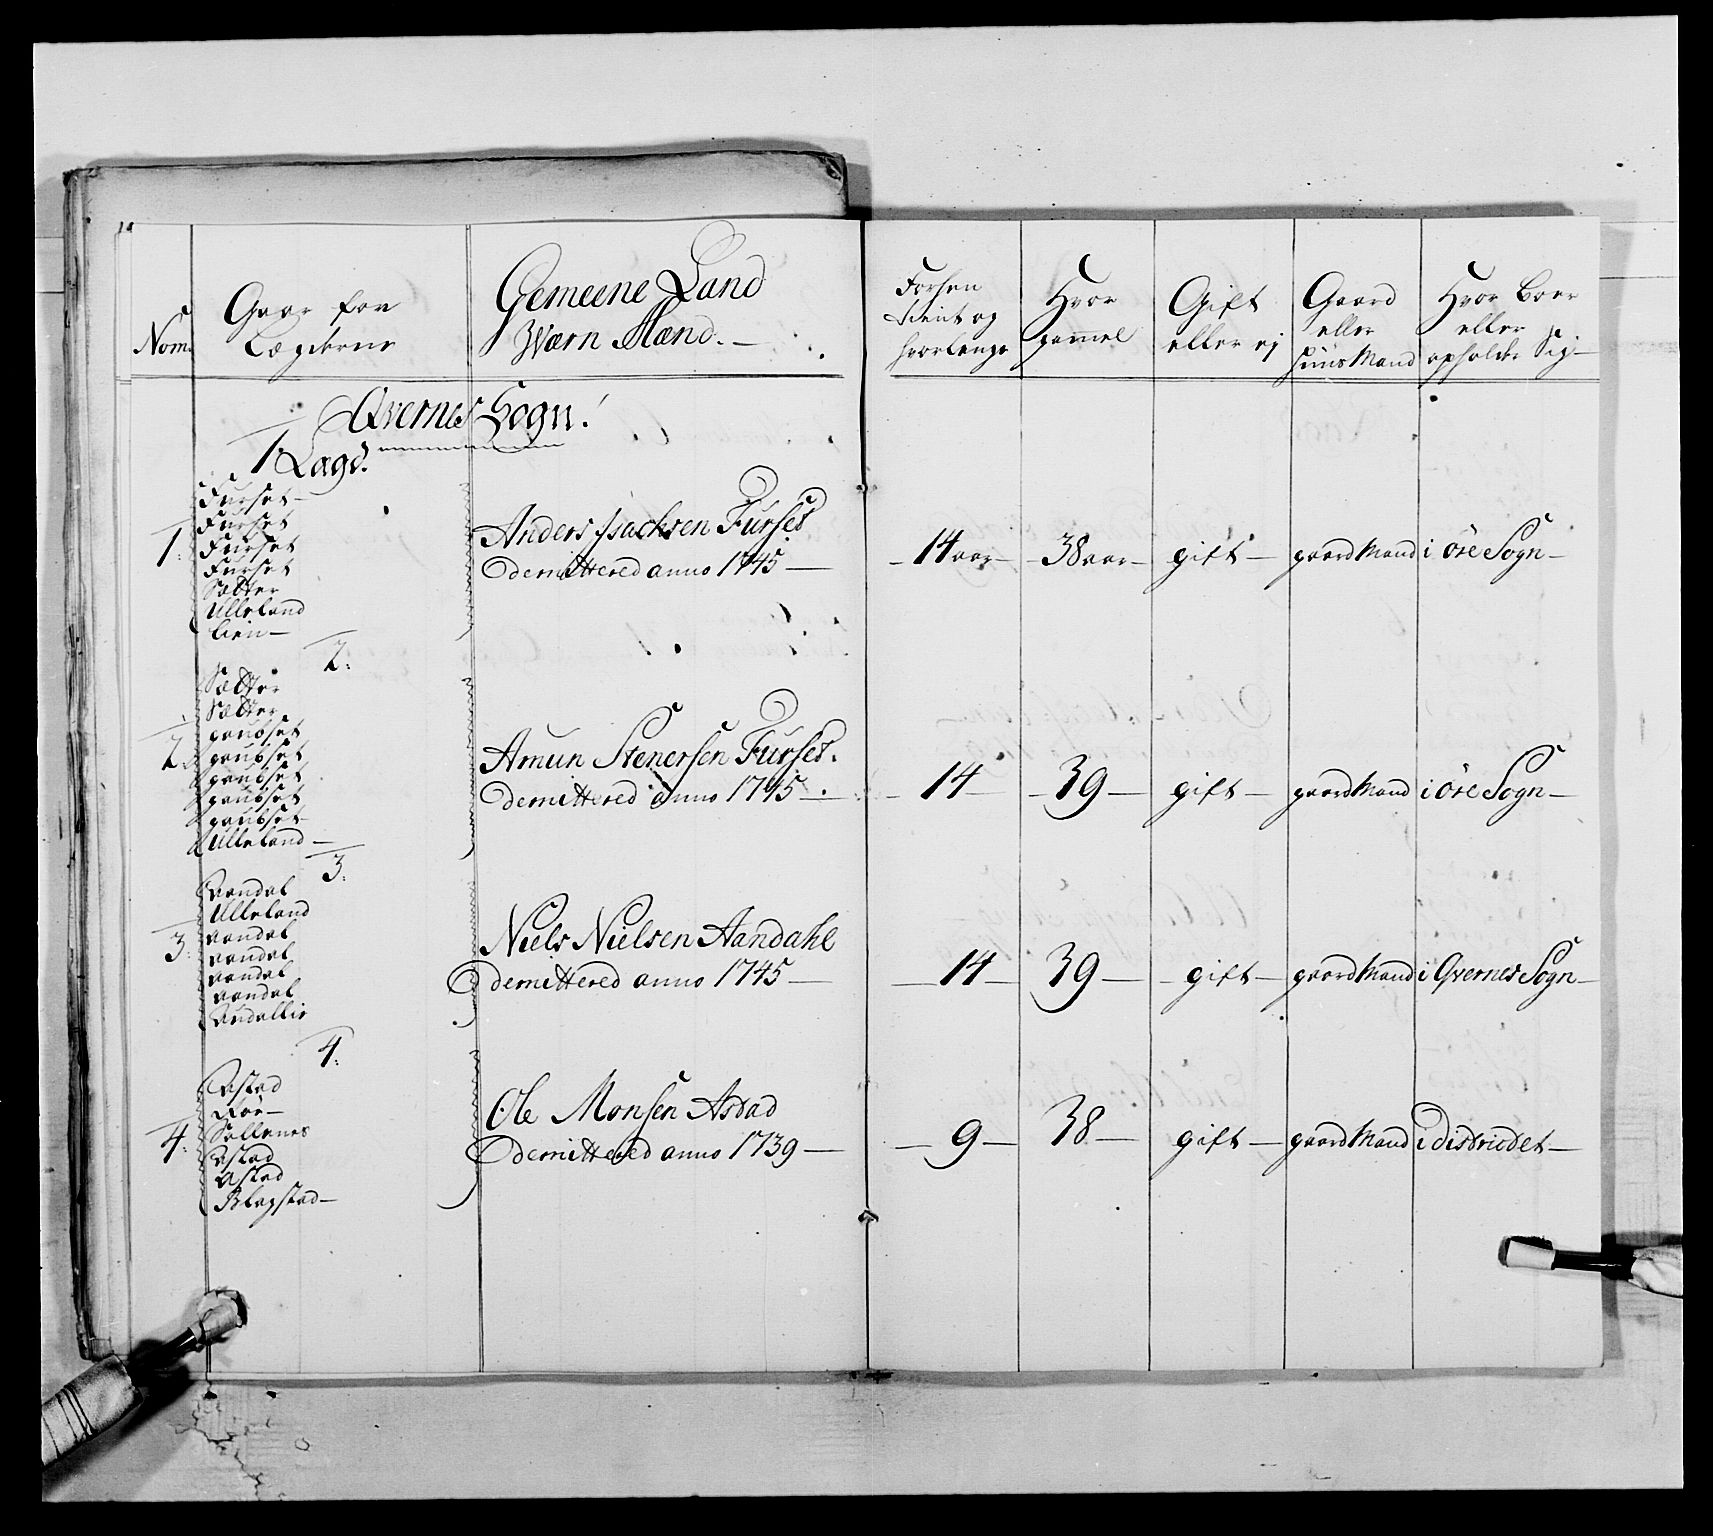 Nom.
Gaar for
Lægderne
Gemeene Land
Wærn Mænd.
Forhen
tient og
hvorlenge
Hvor
gammel
Gift
eller ej
Gaard
eller
huus Mand
Hvor boer
eller
opholder Sig
Qvernes Sogn!
1. Lægd.
Furset
Furset
Furset
Furset
Sætter
Ulleland
Lien
1. Anders Jsachsen Furset
demittered anno 1745
14 aar
38 aar
gift
gaard Mand
i öre Sogn
2.
Sætter
Sætter
graubset
graubset
graubset
graubset
graubset
Ulleland
2. Amun Stenersen Furset.
demittered anno 1745
14
39
gift
gaard Mand
i öre Sogn
3.
aandal
Ulleland
aandal
aandal
aandal
aandal
Andallie
3. Niels Nielsen Aandahl
demittered anno 1745
14
39
gift
gaard Mand
i Qvernes Sogn
4.
Astad
Röe
Sollenes
Astad
Astad
Blegstad
4. Ole Monsen Astad
demittered anno 1739
9
38
gift
gaard Mand
i districtet